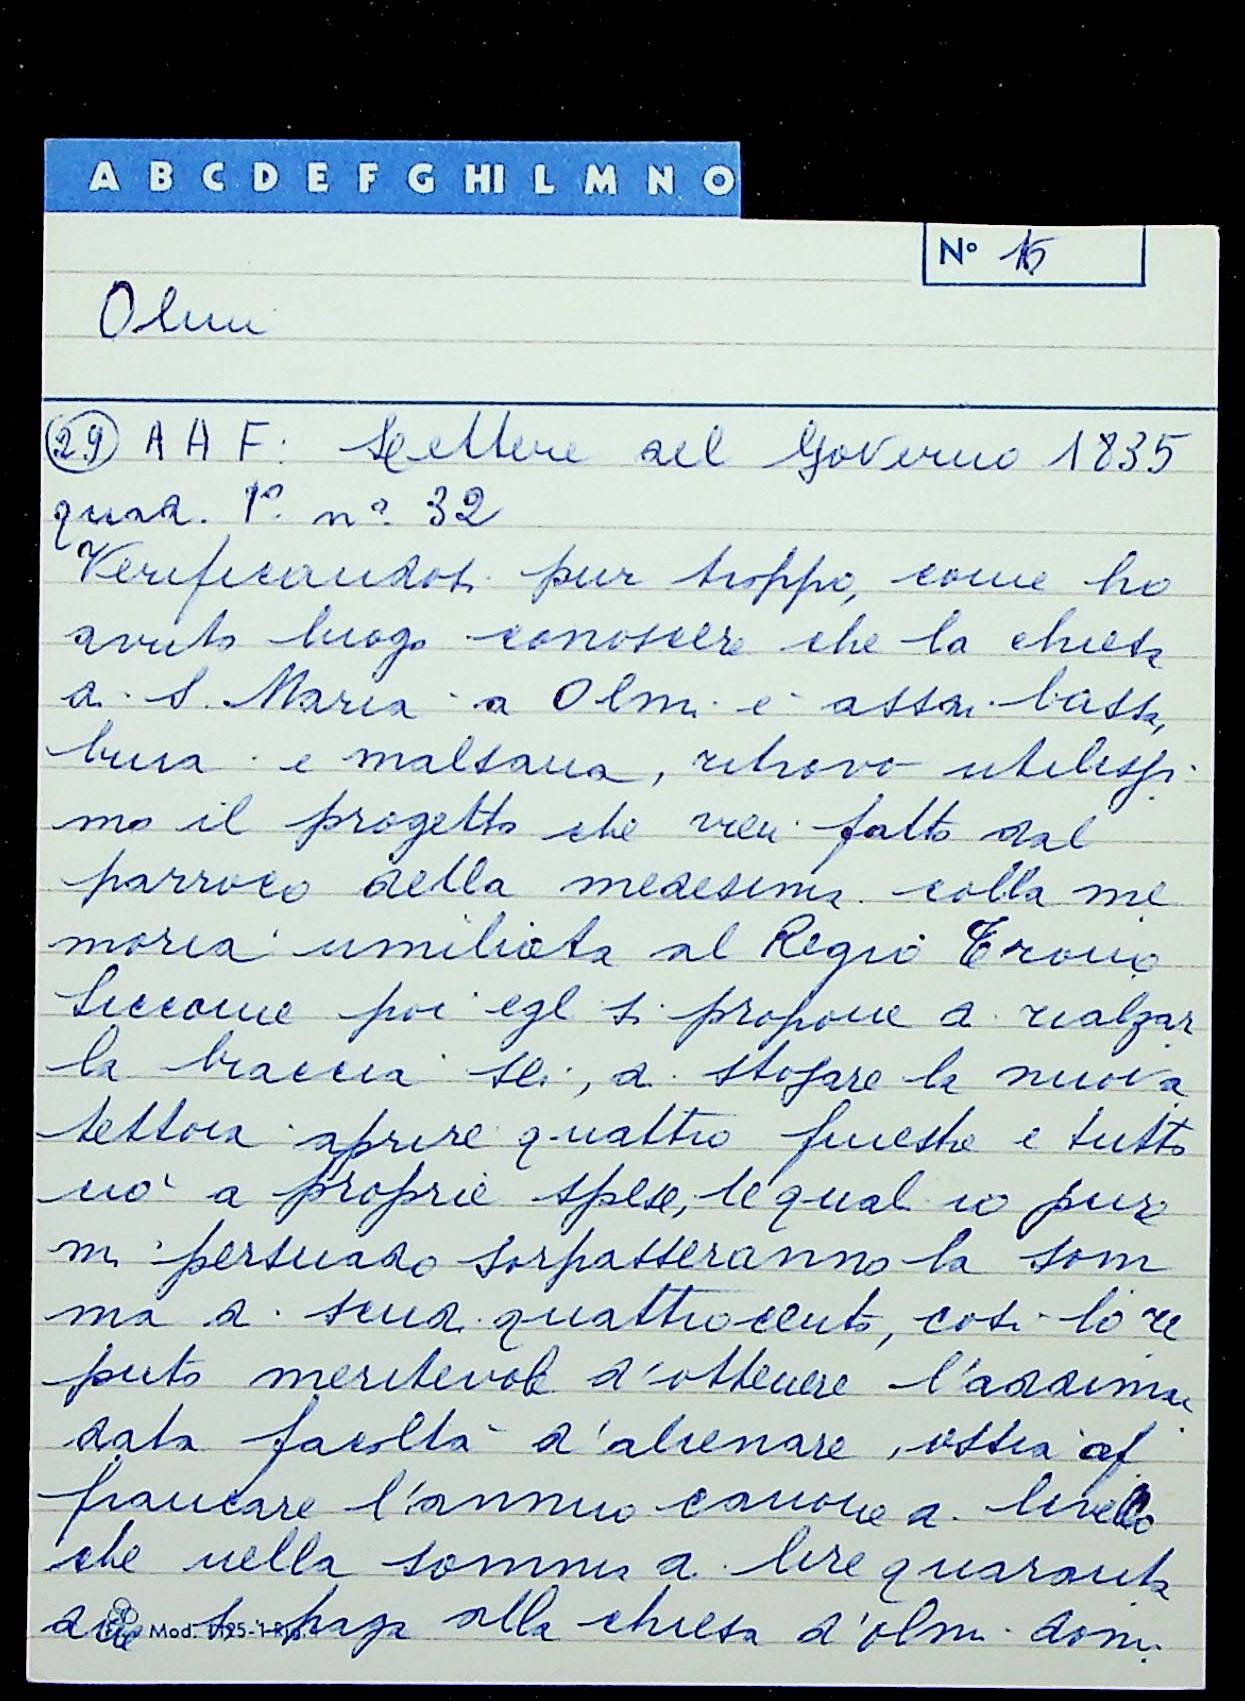 A B C D E F G HI L M N O
N° 15
Olmi
29 A A F: Lettere del Governo 1835
quad. 1° n° 32
Verificandosi pur troppo, come ho
avuto luogo conoscere che la chiesa
di S. Maria a Olmi è assai bassa,
buia e malsana, ritrovo utilissi
mo il progetto che vien fatto dal
parroco della medesima colla me
moria umiliata al Regio Trono
Siccome poi egli si propone di rialzar
la braccia sei, di stoiare la nuova
tettoia aprire quattro finestre e tutto
ciò a proprie spese, le quali io pure
mi persuado sorpasseranno la som
ma di scudi quattrocento, così lo re
puto meritevole d'ottenere l'addiman
data facoltà d'alienare, ossia af
francare l'annuo canone di livello
che nella somma di lire quaranta
due si paga alla chiesa d'olmi domi
Mod.